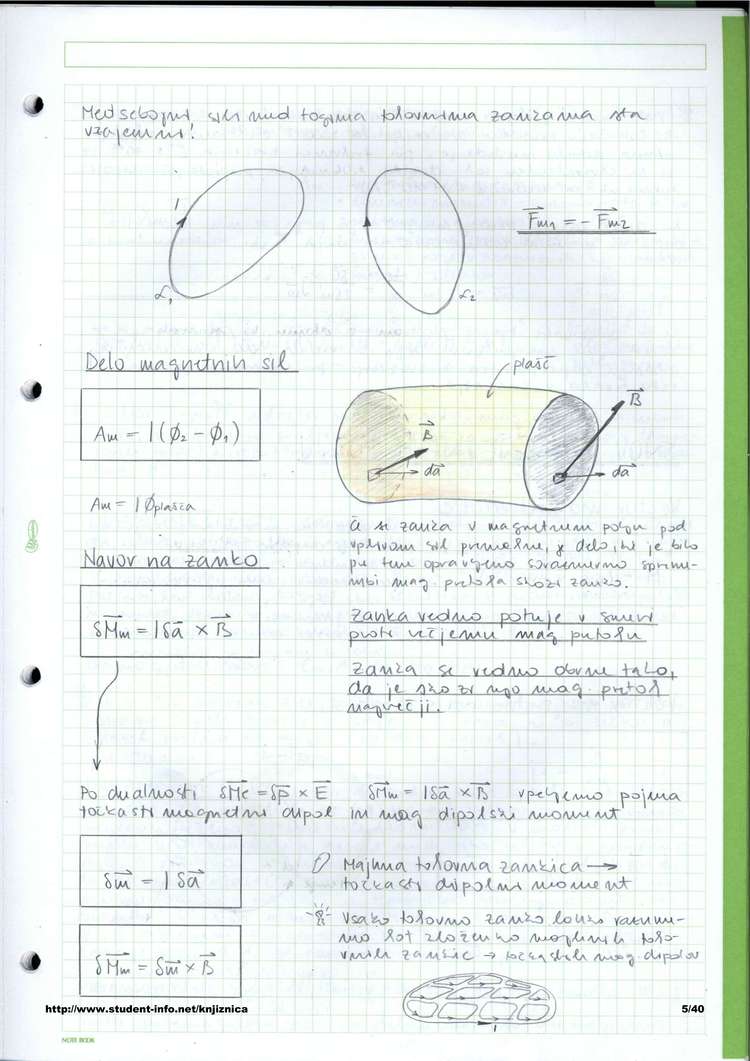 Medsebojni sili med togima tokovnima zankama sta
vzajemni!
I
ℒ₁
ℒ₂
F⃗m1 = - F⃗m2
Delo magnetnih sil
plašč
B⃗
Am = I(ϕ₂ - ϕ₁)
B⃗
da⃗
da⃗
Am = Iϕplašča
Če se zanka v magnetnem polju pod
vplivom sil premakne, je delo, ki je bilo
pri tem opravljeno sorazmerno spreme-
mbi mag. pretoka skozi zanko.
Navor na zanko
δM⃗m = Iδa⃗ × B⃗
Zanka vedno potuje v smeri
proti večjemu mag pretoku
Zanka se vedno obrne tako,
da je skozi njo mag. pretok
največji.
Po dualnosti δM⃗e = δp⃗ × E⃗ δM⃗m = Iδa⃗ × B⃗ vpeljemo pojma
točkasti magnetni dipol in mag dipolski moment
δm⃗ = Iδa⃗
Majhna tokovna zankica →
točkasti dipolni moment
Vsako tokovno zanko lahko razume-
mo kot zloženko majhnih toko-
vnih zankic → točkastih mag. dipolov
δM⃗m = δm⃗ × B⃗
I
http://www.student-info.net/knjiznica
5/40
NOTE BOOK